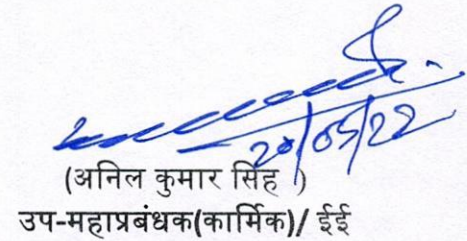 20/05/22
(अनिल कुमार सिंह )
उप-महाप्रबंधक(कार्मिक)/ ईई